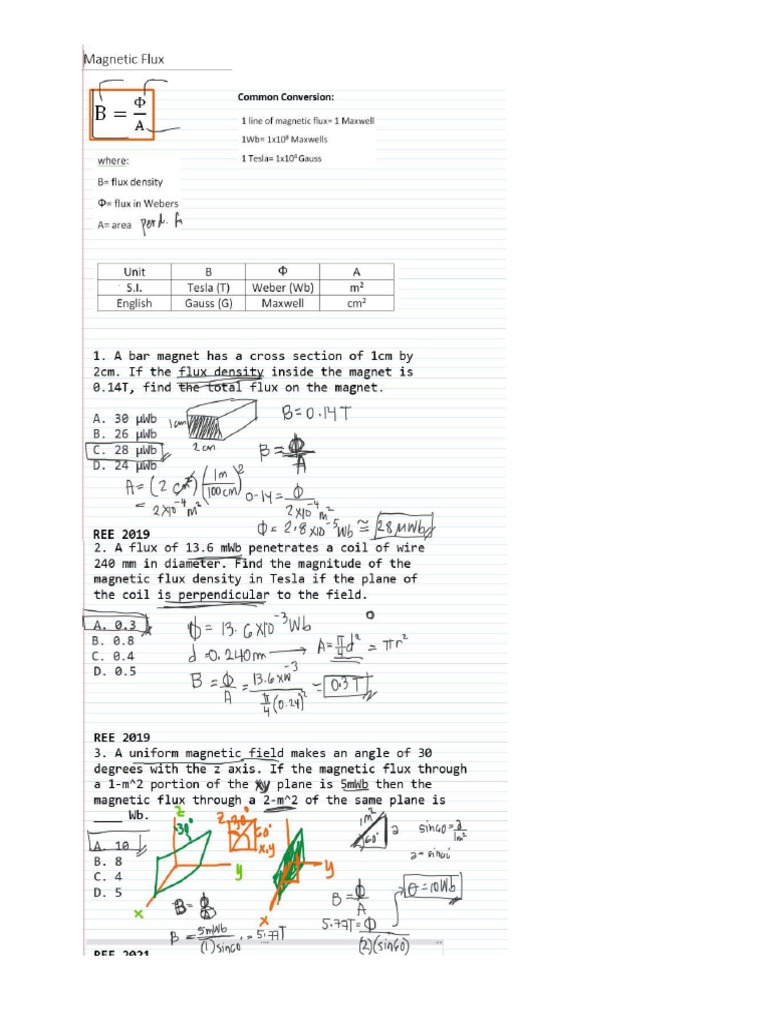 Magnetic Flux
B = Φ/A
Common Conversion:
1 line of magnetic flux= 1 Maxwell
1Wb= 1x10⁸ Maxwells
1 Tesla= 1x10⁴ Gauss
where:
B= flux density
Φ= flux in Webers
A= area
Unit B Φ A
S.I. Tesla (T) Weber (Wb) m²
English Gauss (G) Maxwell cm²
1. A bar magnet has a cross section of 1cm by
2cm. If the flux density inside the magnet is
0.14T, find the total flux on the magnet.
A. 30 μWb
B. 26 μWb
C. 28 μWb
D. 24 μWb
1cm
2cm
B=0.14T
B = Φ/A
A=(2cm²)(1m/100cm)²
= 2x10⁻⁴ m²
0.14 = Φ/2x10⁻⁴ m²
Φ = 2.8x10⁻⁵ Wb ≅ 28μWb
REE 2019
2. A flux of 13.6 mWb penetrates a coil of wire
240 mm in diameter. Find the magnitude of the
magnetic flux density in Tesla if the plane of
the coil is perpendicular to the field.
A. 0.3
B. 0.8
C. 0.4
D. 0.5
Φ = 13.6x10⁻³ Wb
d = 0.240m
A = π/4 d² = πr²
B = Φ/A = 13.6x10⁻³/π/4(0.24)² = 0.3T
REE 2019
3. A uniform magnetic field makes an angle of 30
degrees with the z axis. If the magnetic flux through
a 1-m^2 portion of the xy plane is 5mWb then the
magnetic flux through a 2-m^2 of the same plane is
____ Wb.
A. 10
B. 8
C. 4
D. 5
z
30°
y
x
z 30°
60°
x,y
y
x
1m²
60°
a
sin60 = a/1m²
B = Φ/A
B = 5mWb/(1)sin60 = 5.77T
B = Φ/A
5.77T = Φ/(2)(sin60)
= 10Wb
REE 2021